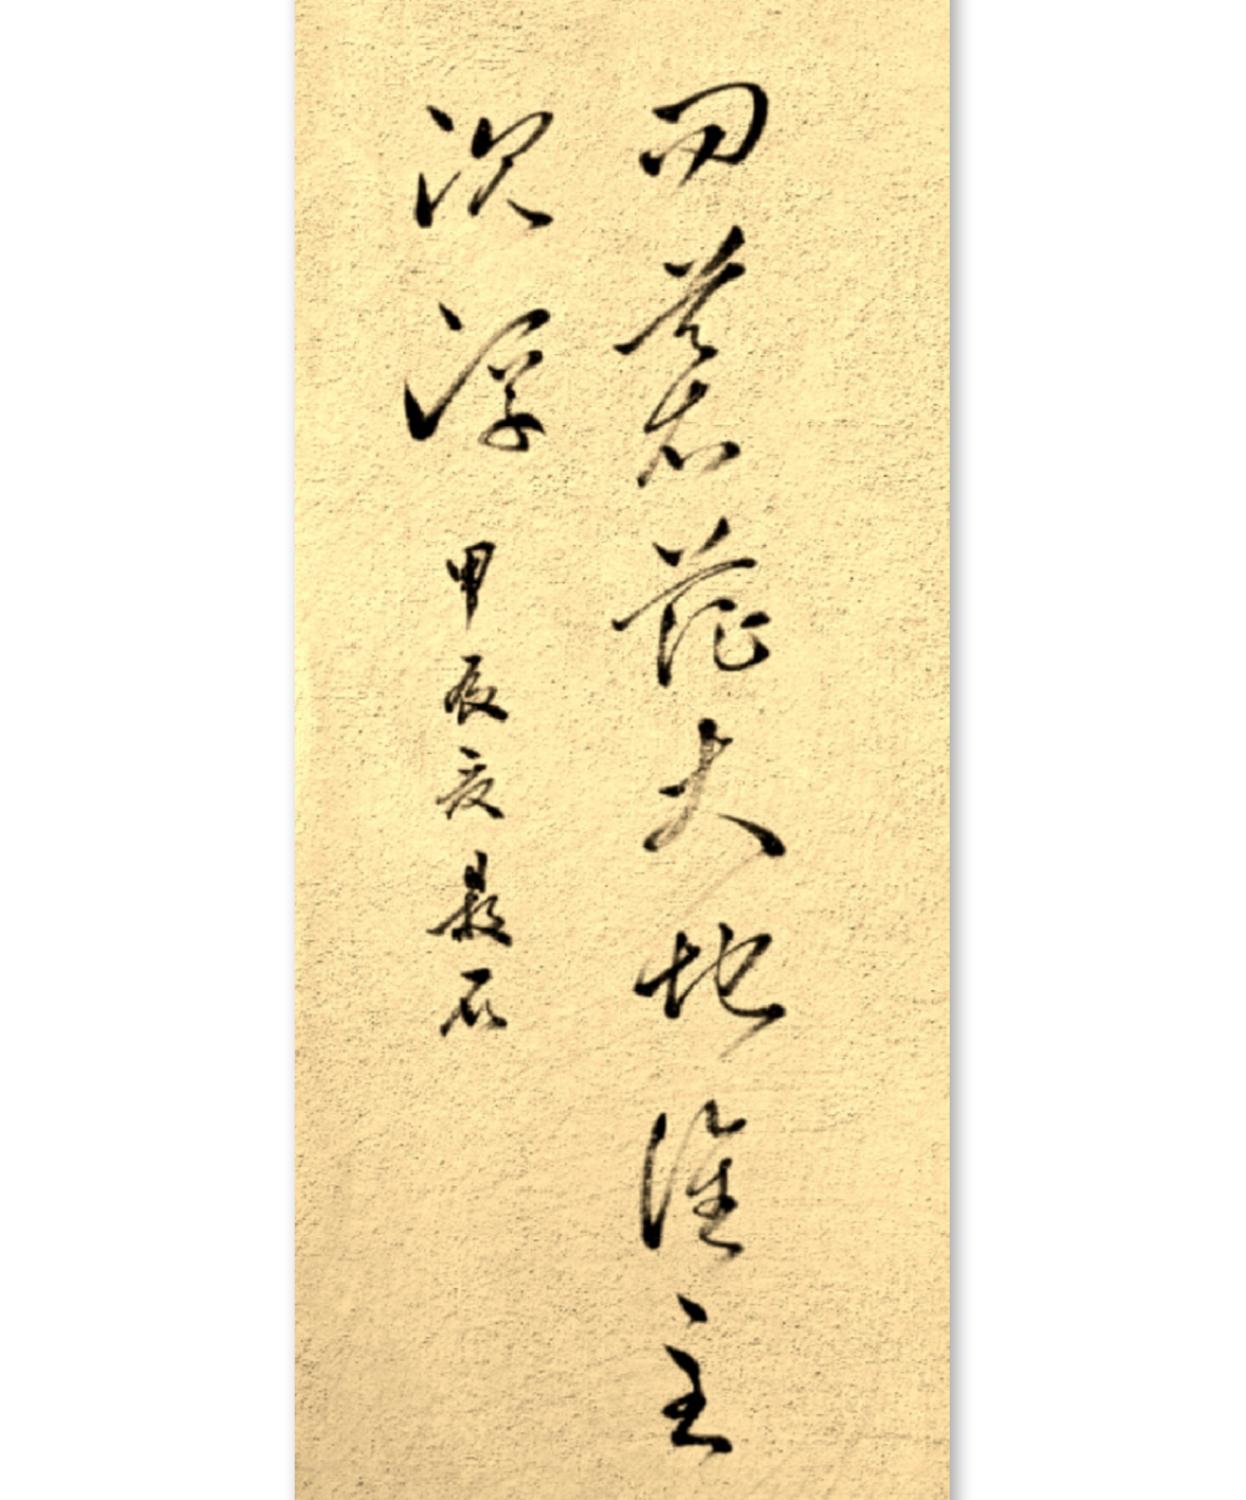 问苍茫大地谁主
沉浮 甲辰夏是石